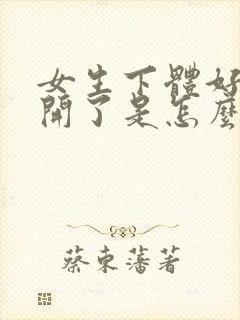 女生下體好
開了是怎麼
蔡東藩著